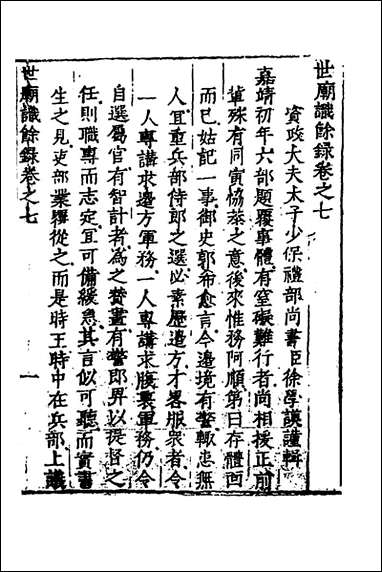 世廟識餘錄卷之七
資政大夫太子少保禮部尚書臣徐學謨謹輯
嘉靖初年六部題覆事體有窒礙難行者尚相援正前
輩殊有同寅協恭之意後來惟務阿順第曰存體面
而已姑記一事御史郭希愈言今邊境有警輒患無
人宜重兵部侍郎之選必素歷邊方才畧服衆者令
一人專講求邊方軍務一人專講求腹裏軍務仍令
自選屬官有智計者為之贊畫有警即畀以提督之
任則職專而志定宜可備緩急其言似可聽而實書
生之見吏部業覆從之而是時王時中在兵部上議
世廟識餘錄卷之七
一